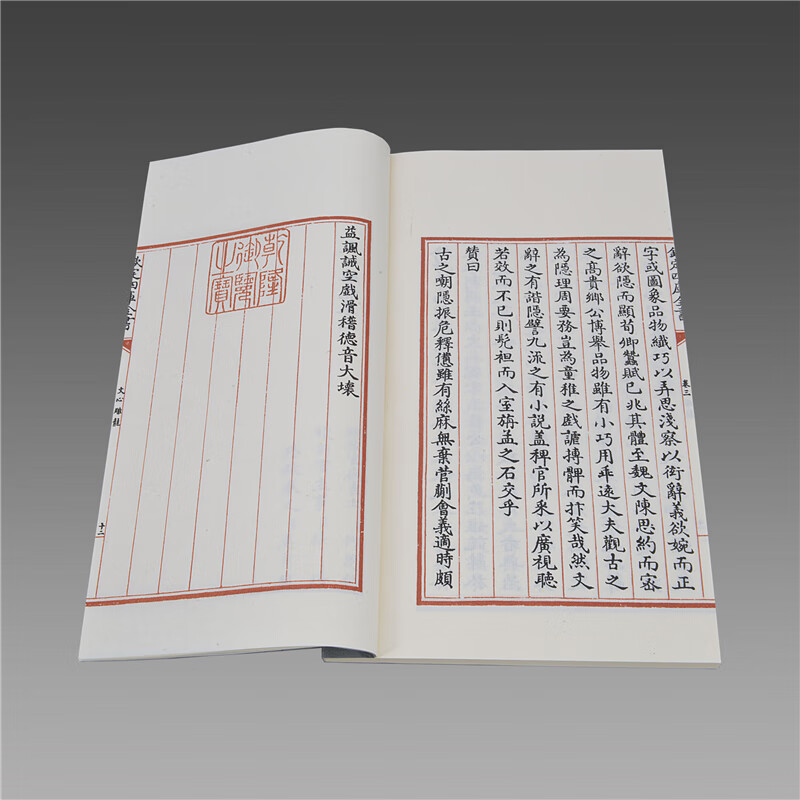 欽定四庫全書
卷三
字或圖象品物纖巧以弄思淺察以衒辭義欲婉而正
辭欲隱而顯荀卿蠶賦已兆其體至魏文陳思約而宻
之髙貴鄉公博舉品物雖有小巧用乖遠大夫觀古之
為隱理周要務豈為童稚之戲謔搏髀而抃笑哉然文
辭之有諧隱譬九流之有小說蓋稗官所采以廣視聽
若效而不已則髠袒而入室旃孟之石交乎
贊曰
古之嘲隱振危釋憊雖有絲麻無棄菅蒯會義適時頗
益諷誡空戲滑稽德音大壞
乾隆御覽之寶
欽定四庫全書
文心雕龍
十二